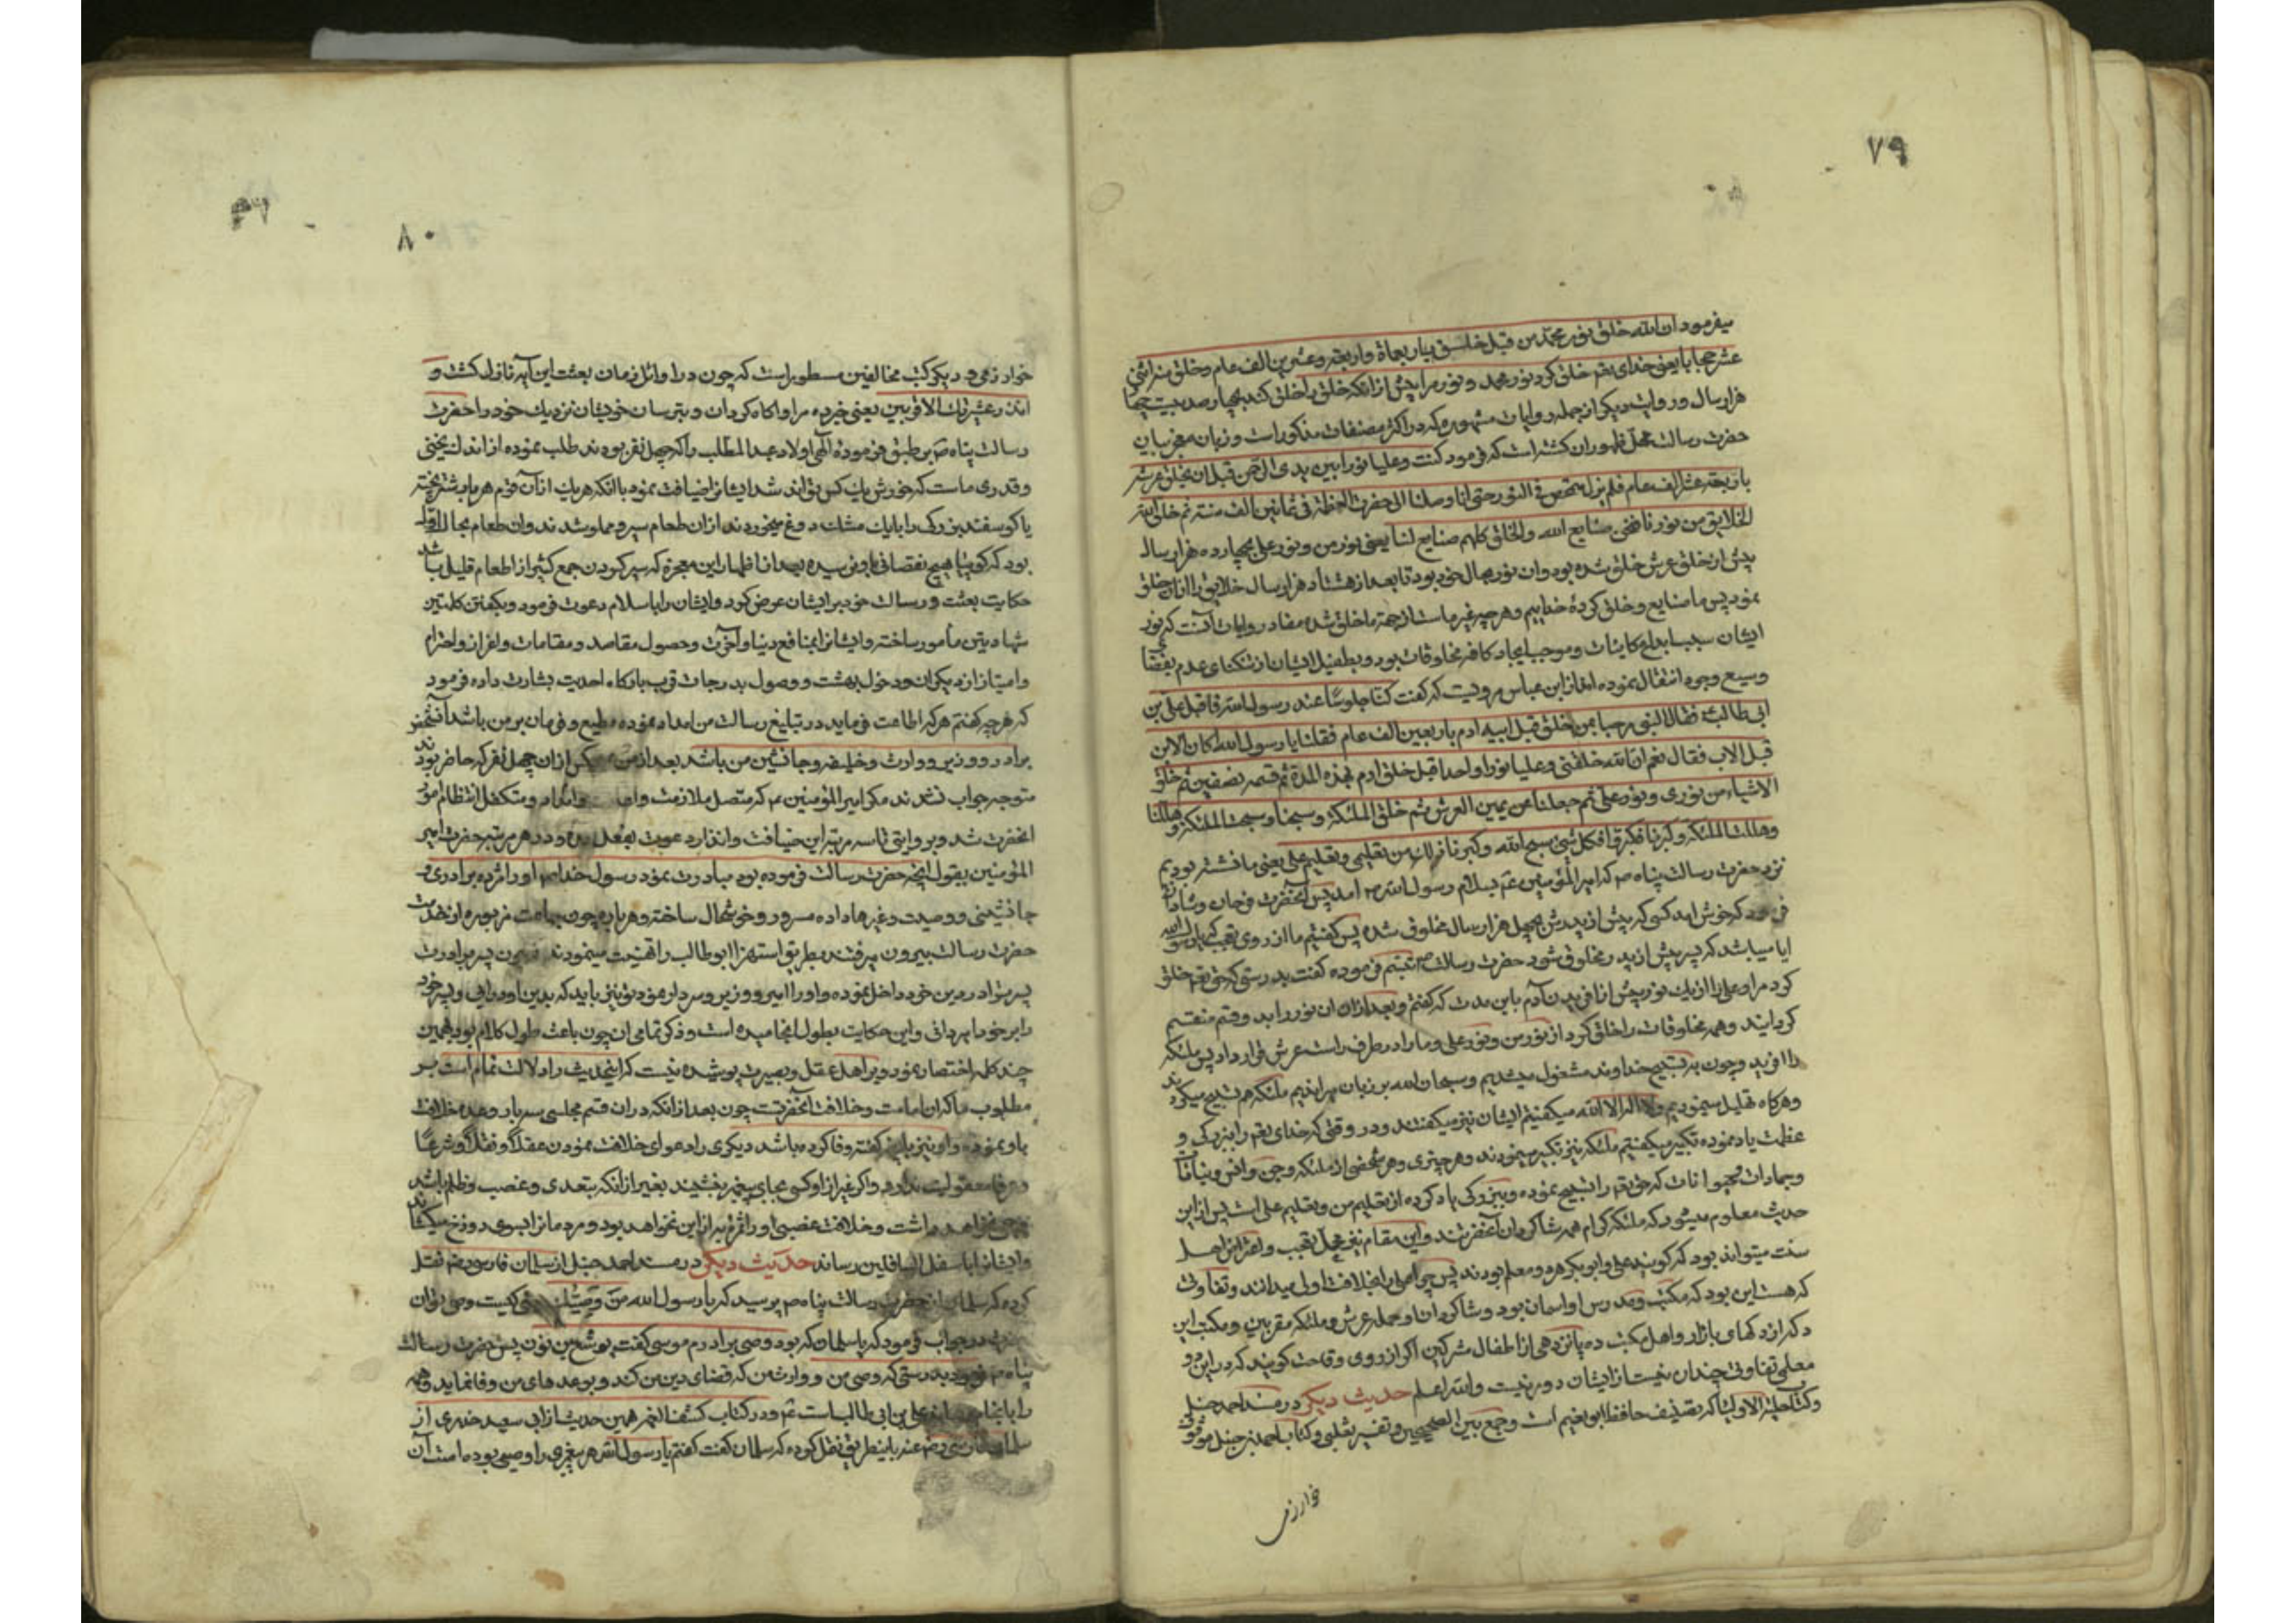 ٧٩
میفرمود ان الله خلق نور محمد من قبل خلق بیاربعمأة واربعه وعشرین الف عام وخلق منه اثنی
عشر حجابا یعنی خدای تعم خلق کرد نور محمد و نور مرا پیش از انکه خلق را خلق کند بچهارصد بیست چهار
هزار سال و روایت دیگر از جمله روایات مشهوره که در اکثر مصنفات مذکور است و زبان معجز بیان
حضرت رسالت محل ظهور ان کشته است که فرمود کنت وعلیا نورا بین یدی الرحمن قبل ان یخلق عرشه
باربعة عشر الف عام فلم یزل فی النور حتی اذا وصلنا الی حضرت العظمة فی ثمانین الف سنه ثم خلق الله
الخلایق من نورنا فنحن صنایع الله والخلق کلهم صنایع لنا یعنی نور من و نور علی بچهارده هزار سال
پیش از خلق عرش خلق شده بود وان نور بحال خود بود تا بعد از هشتاد هزار سال خلایق را از ان خلق
نمود پس ما صنایع و خلق کردهٔ خداییم وهر چه غیر ماست از جهة ما خلق شده مفاد روایات آنست که نور
ایشان سبب ابداع کاینات وموجب ایجاد کافه مخلوقات بود وبطفیل ایشان از تنکنای عدم بفضای
وسیع وجود انتقال نموده اند از ابن عباس مرویست که کفت کنا جلوسًا عند رسول الله فاقبل علی بن
ابی طالب فقال النبی مرحبا بمن خلق قبل ابیه ادم باربعین الف عام فقلنا یا رسول الله اکان الابن
قبل الاب فقال نعم ان الله خلقنی وعلیا نورا واحدا قبل خلق ادم بهذه المدة ثم قسمه نصفین ثم خلق
الاشیاء من نوری و نور علی ثم جعلنا عن یمین العرش ثم خلق الملئکة وسبحنا وسبحت الملئکة وهللنا
وهللت الملئکه وکبرنا فکبروا فکل شئ سبح الله وکبره فان ذلک من تعلیمی وتعلیم علی یعنی ما نشسته بودیم
نزد حضرت رسالت پناه ص که امیر المؤمنین ع بسلام رسول الله ص امد پس انحضرت فرحان وشادان
فرمود که خوش امد کسی که پیش از پدرش بچهل هزار سال مخلوق شده پس کفتیم ما از روی تعجب که یا رسول الله
ایا میباشد که پسر پیش از پدر مخلوق شود حضرت رسالت ص تبسم فرموده کفت بدرستی که حق تعم خلق
کرد مرا وعلی را از یک نور پیش از افریدن آدم باین مدت که کفتم وبعد از ان ان نور را بدو قسم منقسم
کردانید وهمه مخلوقات را خلق کرد از نور من و نور علی وما را در طرف راست عرش قرار داد پس ملئکه
را افرید وچون به تسبیح خداوند مشغول میشدیم و سبحان الله بر زبان میراندیم ملئکه هم تسبیح میکردند
وهرکاه تهلیل مینمودیم ولا اله الا الله میکفتیم ایشان نیز میکفتند و در وقتی که خدای تعم را ببزرکی و
عظمت یاد نموده تکبیر میکفتیم ملئکه نیز تکبیر مینمودند وهر چیزی وهر شخصی از ملئکه وجن وانس ونباتات
وجمادات وحیوانات که حق تعم را تسبیح نموده وببزرکی یاد کرده از تعلیم من وتعلیم علی است پس از این
حدیث معلوم میشود که ملئکه کرام همه شاکردان آنحضرتند واین مقام نیز محل تعجب واعتراض اهل
سنت میتواند بود که کویند علی وابو بکر هر دو معلم بودند پس چرا علی را بخلافت اولی میدانند وتفاوت
که هست این بود که مکتب ومدرس او اسمان بود وشاکردان او حمله عرش و ملئکه مقربین ومکتب این
دکه از دکهای بازار واهل مکتب ده پانزدهی از اطفال مشرکین اکر از روی وقاحت کویند که در این دو
معلمی تفاوتی چندان نیست از ایشان دور نیست والله اعلم حدیث دیکر در مسند احمد حنبل
وکتاب حلیة الاولیا که تصنیف حافظ ابو نعیم است وجمع بین الصحیحین وتفسیر ثعلبی وکتاب احمد بن حنبل موفق
خوارزمی
٨٠
خوارزمی ودیکر کتب مخالفین مسطور است که چون در اوائل زمان بعثت این آیه نازل کشت و
انذر عشیرتک الاقربین یعنی خبر ده مرا واکاه کردان و بترسان خویشان نزدیک خود را حضرت
رسالت پناه ص بر طبق فرمودهٔ الهی اولاد عبد المطلب را که چهل نفر بودند طلب نموده از اندک یخنی
وقدری ماست که خورش یک کس تواند شد ایشانرا ضیافت نمود با انکه هریک از آن قوم هر بار شتر پخته
یا کوسفند بزرک را با یک مشک دوغ میخوردند از ان طعام سیر ومملو شدند وان طعام بحال اول
بود که کویا هیچ نقصانی باو نرسیده بعد از اظهار این معجزه که سیر کردن جمع کثیر از اطعام قلیل باشد
حکایت بعثت و رسالت خود بر ایشان عرض کرد وایشان را باسلام دعوت فرمود وبکفتن کلمتین
شهادتین مأمور ساخته وایشانرا بمنافع دنیا وآخرت وحصول مقاصد ومقامات واعزاز واحترام
وامتیاز از دیکران ودخول بهشت ووصول بدرجات قرب بارکاه احدیت بشارت داده فرمود
که هر چه کفتم هر که اطاعت فرماید در تبلیغ رسالت من امداد نموده مطیع وفرمان بر من باشد آنشخص
برادر ووزیر ووارث وخلیفه وجانشین من باشد بعد از من یکس از ان چهل نفر که حاضر بودند
متوجه جواب نشدند مکر امیر المؤمنین ع که متصل ملازمت وامداد ومتکفل انتظام امور
انحضرت شد وبروایتی تا سه مرتبه این ضیافت وانذار دعوت بفعل امده ودر هر مرتبه حضرت امیر
المؤمنین بقول انچه حضرت رسالت فرموده بود مبادرت نمود رسول خدا هم او را مژده برادری و
جانشینی ووصیت وغیرها داده مسرور وخوشحال ساخته وهر بار چون جماعت مزبوره از خدمت
حضرت رسالت بیرون میرفتند بطریق استهزا ابو طالب را تهنیت مینمودند چون پسر برادرت
پسر ترا در دین خود داخل نموده واو را امیر ووزیر وسردار نموده تو نیز باید که بدین او درائی وپسر خود
را بر خود امیر دانی واین حکایت بطول انجامیده است وذکر تمامی ان چون باعث طول کلام بود بهمین
چند کلمه اختصار نمود وبر اهل عقل وبصیرت پوشیده نیست که اینحدیث را دلالت تمام است بر
مطلوب ما که ان امامت وخلافت انحضرتست چون بعد از انکه در ان قسم مجلسی سه بار وعده خلافت
باو نموده واو نیز بانچه کفته وفا کرده باشد دیکری را دعوای خلافت نمودن عقلاً ونقلاً وشرعًا
وعرفا معقولیت ندارد واکر غیر از او کسی بجای پیغمبر بنشیند بغیر از انکه بتعدی وغصب وظلم باشد
وجهی نخواهد داشت وخلافت غصبی او را ثمره به از این نخواهد بود ومردمانرا بسوی دوزخ میکشاند
وایشانرا باسفل السافلین رساند حدیث دیکر در مسند احمد حنبل از سلمان فارسی رض نقل
کرده که سلمان از حضرت رسالت پناه ص پرسید که یا رسول الله من وصیک یعنی کیست وصی تو ان
حضرت در جواب فرمود که یا سلمان که بود وصی برادرم موسی کفت یوشع بن نون پس حضرت رسالت
پناه ص فرمود بدرستی که وصی من ووارث من که قضای دین من کند وبوعدهای من وفا نماید وهمه
را بانجام رساند علی بن ابی طالب است ع ودر کتاب کشف الغمه همین حدیث از ابی سعید خدری از
سلمان فارسی رض عنه باینطریق نقل کرده که سلمان کفت کفتم یا رسول الله هر پیغمبری را وصیی بوده است آن